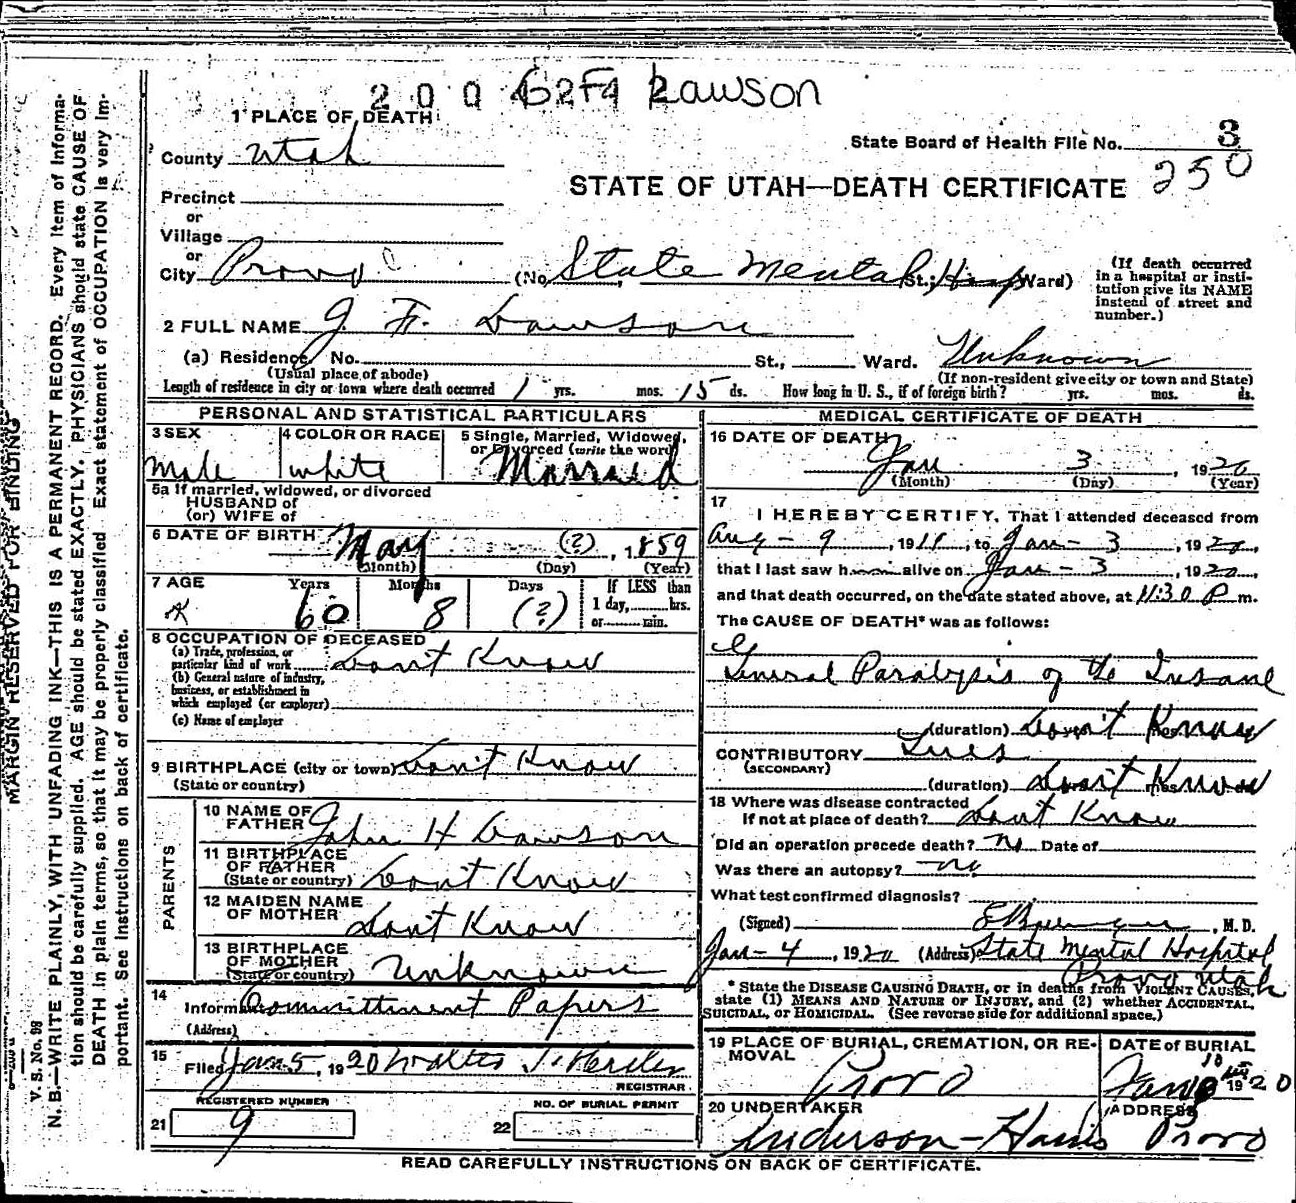 2 0 0 4 2 Lawson
1 PLACE OF DEATH
County Utah
State Board of Health File No. 3
250
STATE OF UTAH—DEATH CERTIFICATE
Precinct
or
Village
or
City Provo (No. State Mental St.; Hosp Ward)
(If death occurred in a hospital or institution give its NAME instead of street and number.)
2 FULL NAME J. F. Lawson
(a) Residence, No. St., Ward. Unknown
(Usual place of abode) (If non-resident give city or town and State)
Length of residence in city or town where death occurred 1 yrs. mos. 15 ds. How long in U. S., if of foreign birth? yrs. mos. ds.
PERSONAL AND STATISTICAL PARTICULARS
3 SEX male
4 COLOR OR RACE white
5 Single, Married, Widowed, or Divorced (write the word) Married
5a If married, widowed, or divorced
HUSBAND of
(or) WIFE of
6 DATE OF BIRTH May (?), 1859
(Month) (Day) (Year)
7 AGE Years 60 Months 8 Days (?) If LESS than 1 day, hrs. or min.
8 OCCUPATION OF DECEASED
(a) Trade, profession, or particular kind of work Dont Know
(b) General nature of industry, business, or establishment in which employed (or employer)
(c) Name of employer
9 BIRTHPLACE (city or town) Dont Know
(State or country)
PARENTS
10 NAME OF FATHER John H Lawson
11 BIRTHPLACE OF FATHER (State or country) Dont Know
12 MAIDEN NAME OF MOTHER Dont Know
13 BIRTHPLACE OF MOTHER (State or country) Unknown
14 Informant Committment Papers
(Address)
15 Filed Jan 5, 1920 Walter
REGISTRAR
REGISTERED NUMBER
21 9
NO. OF BURIAL PERMIT
22
MEDICAL CERTIFICATE OF DEATH
16 DATE OF DEATH Jan 3, 1920
(Month) (Day) (Year)
17 I HEREBY CERTIFY, That I attended deceased from
Aug - 9, 191, to Jan - 3, 1920,
that I last saw h alive on Jan - 3, 1920,
and that death occurred, on the date stated above, at 11:30 P m.
The CAUSE OF DEATH* was as follows:
General Paralysis of the Insane
(duration) Don't Know
CONTRIBUTORY Lues
(SECONDARY)
(duration) Don't Know
18 Where was disease contracted
If not at place of death? Dont Know
Did an operation precede death? no Date of
Was there an autopsy? no
What test confirmed diagnosis?
(Signed) , M. D.
Jan - 4, 1920 (Address) State Mental Hospital
Provo Utah
* State the DISEASE CAUSING DEATH, or in deaths from VIOLENT CAUSES, state (1) MEANS AND NATURE OF INJURY, and (2) whether ACCIDENTAL, SUICIDAL, or HOMICIDAL. (See reverse side for additional space.)
19 PLACE OF BURIAL, CREMATION, OR REMOVAL Provo
DATE of BURIAL Jan 1920
20 UNDERTAKER Anderson - Provo
ADDRESS
READ CAREFULLY INSTRUCTIONS ON BACK OF CERTIFICATE.
MARGIN RESERVED FOR BINDING
V. S. No. 98
N. B.—WRITE PLAINLY, WITH UNFADING INK—THIS IS A PERMANENT RECORD. Every item of information should be carefully supplied. AGE should be stated EXACTLY. PHYSICIANS should state CAUSE OF DEATH in plain terms, so that it may be properly classified. Exact statement of OCCUPATION is very important. See instructions on back of certificate.